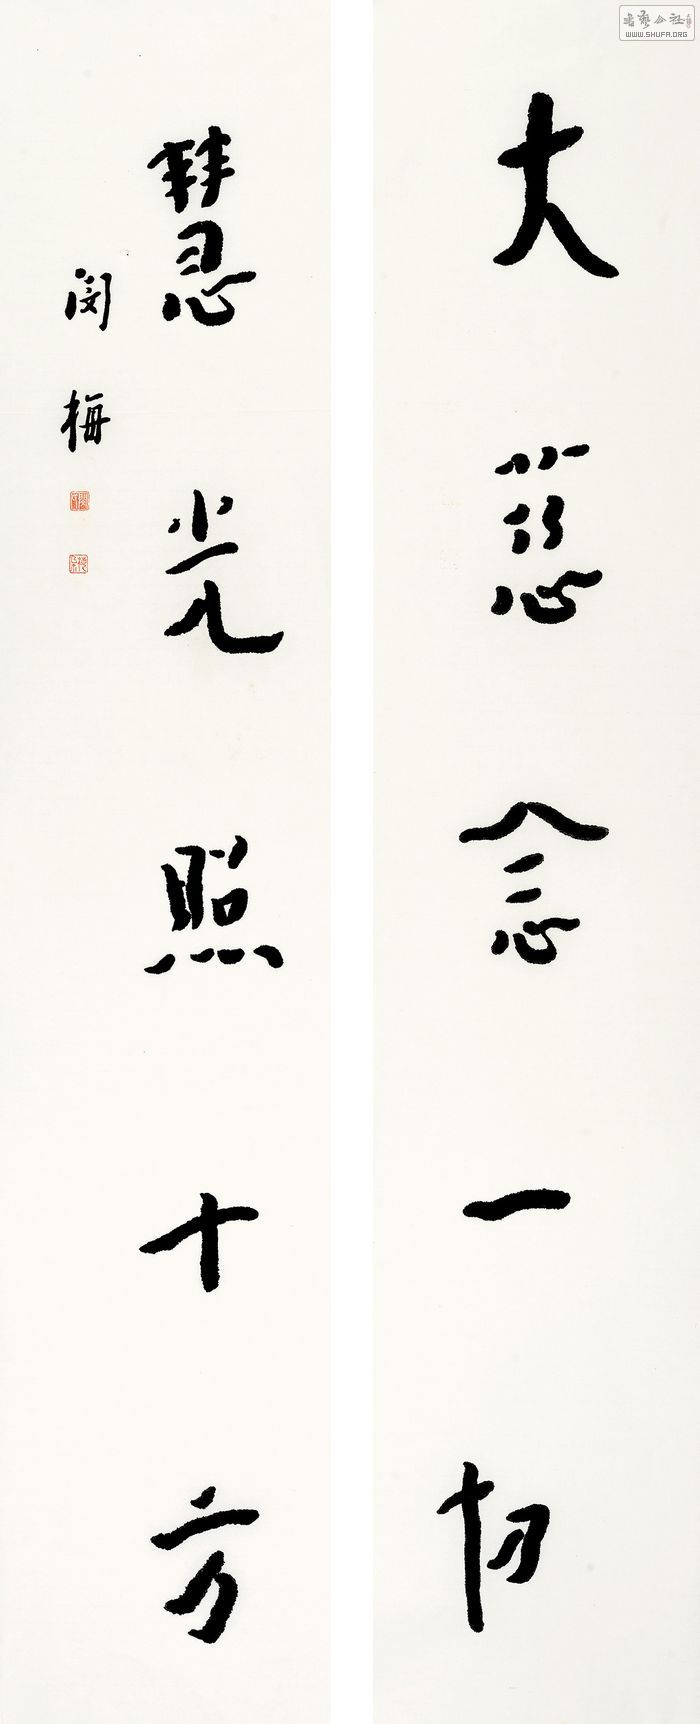 大慈念一切
慧光照十方
闵梅
書藝公社
WWW.SHUFA.ORG